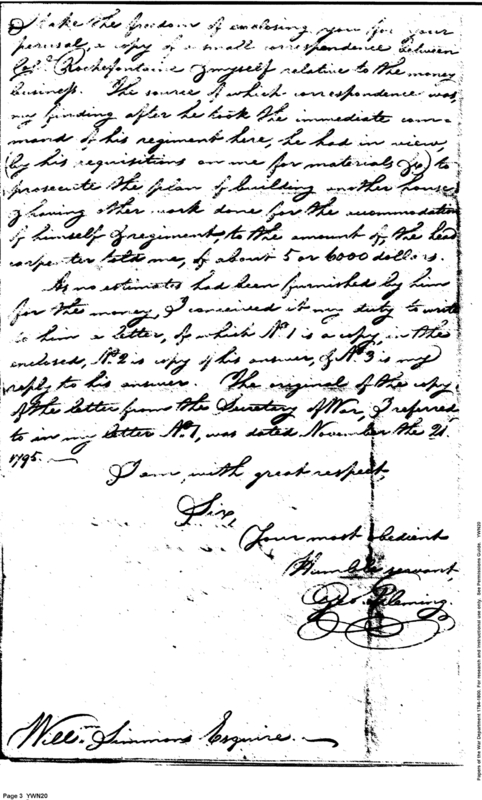 I take the freedom of enclosing you for your
perusal, a copy of a small correspondence between
Col.º Rochefontaine & myself relative to the money
business. The source of which correspondence was,
my finding after he took the immediate com-
mand of his regiment here, he had in view,
(by his requisitions on me for materials &c) to
prosecute the plan of building another house,
& having other work done for the accommodation
of himself & regiment, to the amount of, the head
carpenter told me, of about 5 or 6000 dollars.
As no estimates had been furnished by him
for the money, I conceived it my duty to write
to him a letter, of which Nº 1 is a copy, in the
enclosed, Nº 2 is copy of his answer, & Nº 3 is my
reply to his answer. The original of the copy
of the letter from the Secretary of War, I referred
to in my letter Nº 1, was dated November the 21.
1795.
I am, with great respect,
Sir,
Your most obedient
Humble servant,
Geo. Fleming.
Will.m Simmons Esquire.
Page 3 YWN20
Papers of the War Department 1784-1800. For research and instructional use only. See Permissions Guide. YWN20